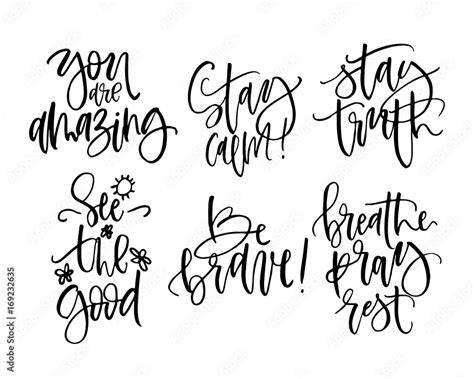 You
are
amazing
Stay
calm!
stay
truth
See
the
good
Be
brave!
breathe
pray
rest
Adobe Stock | #169232635